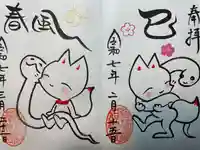 奉拝
巳
令和七年二月十五日
春風
令和七年三月十五日